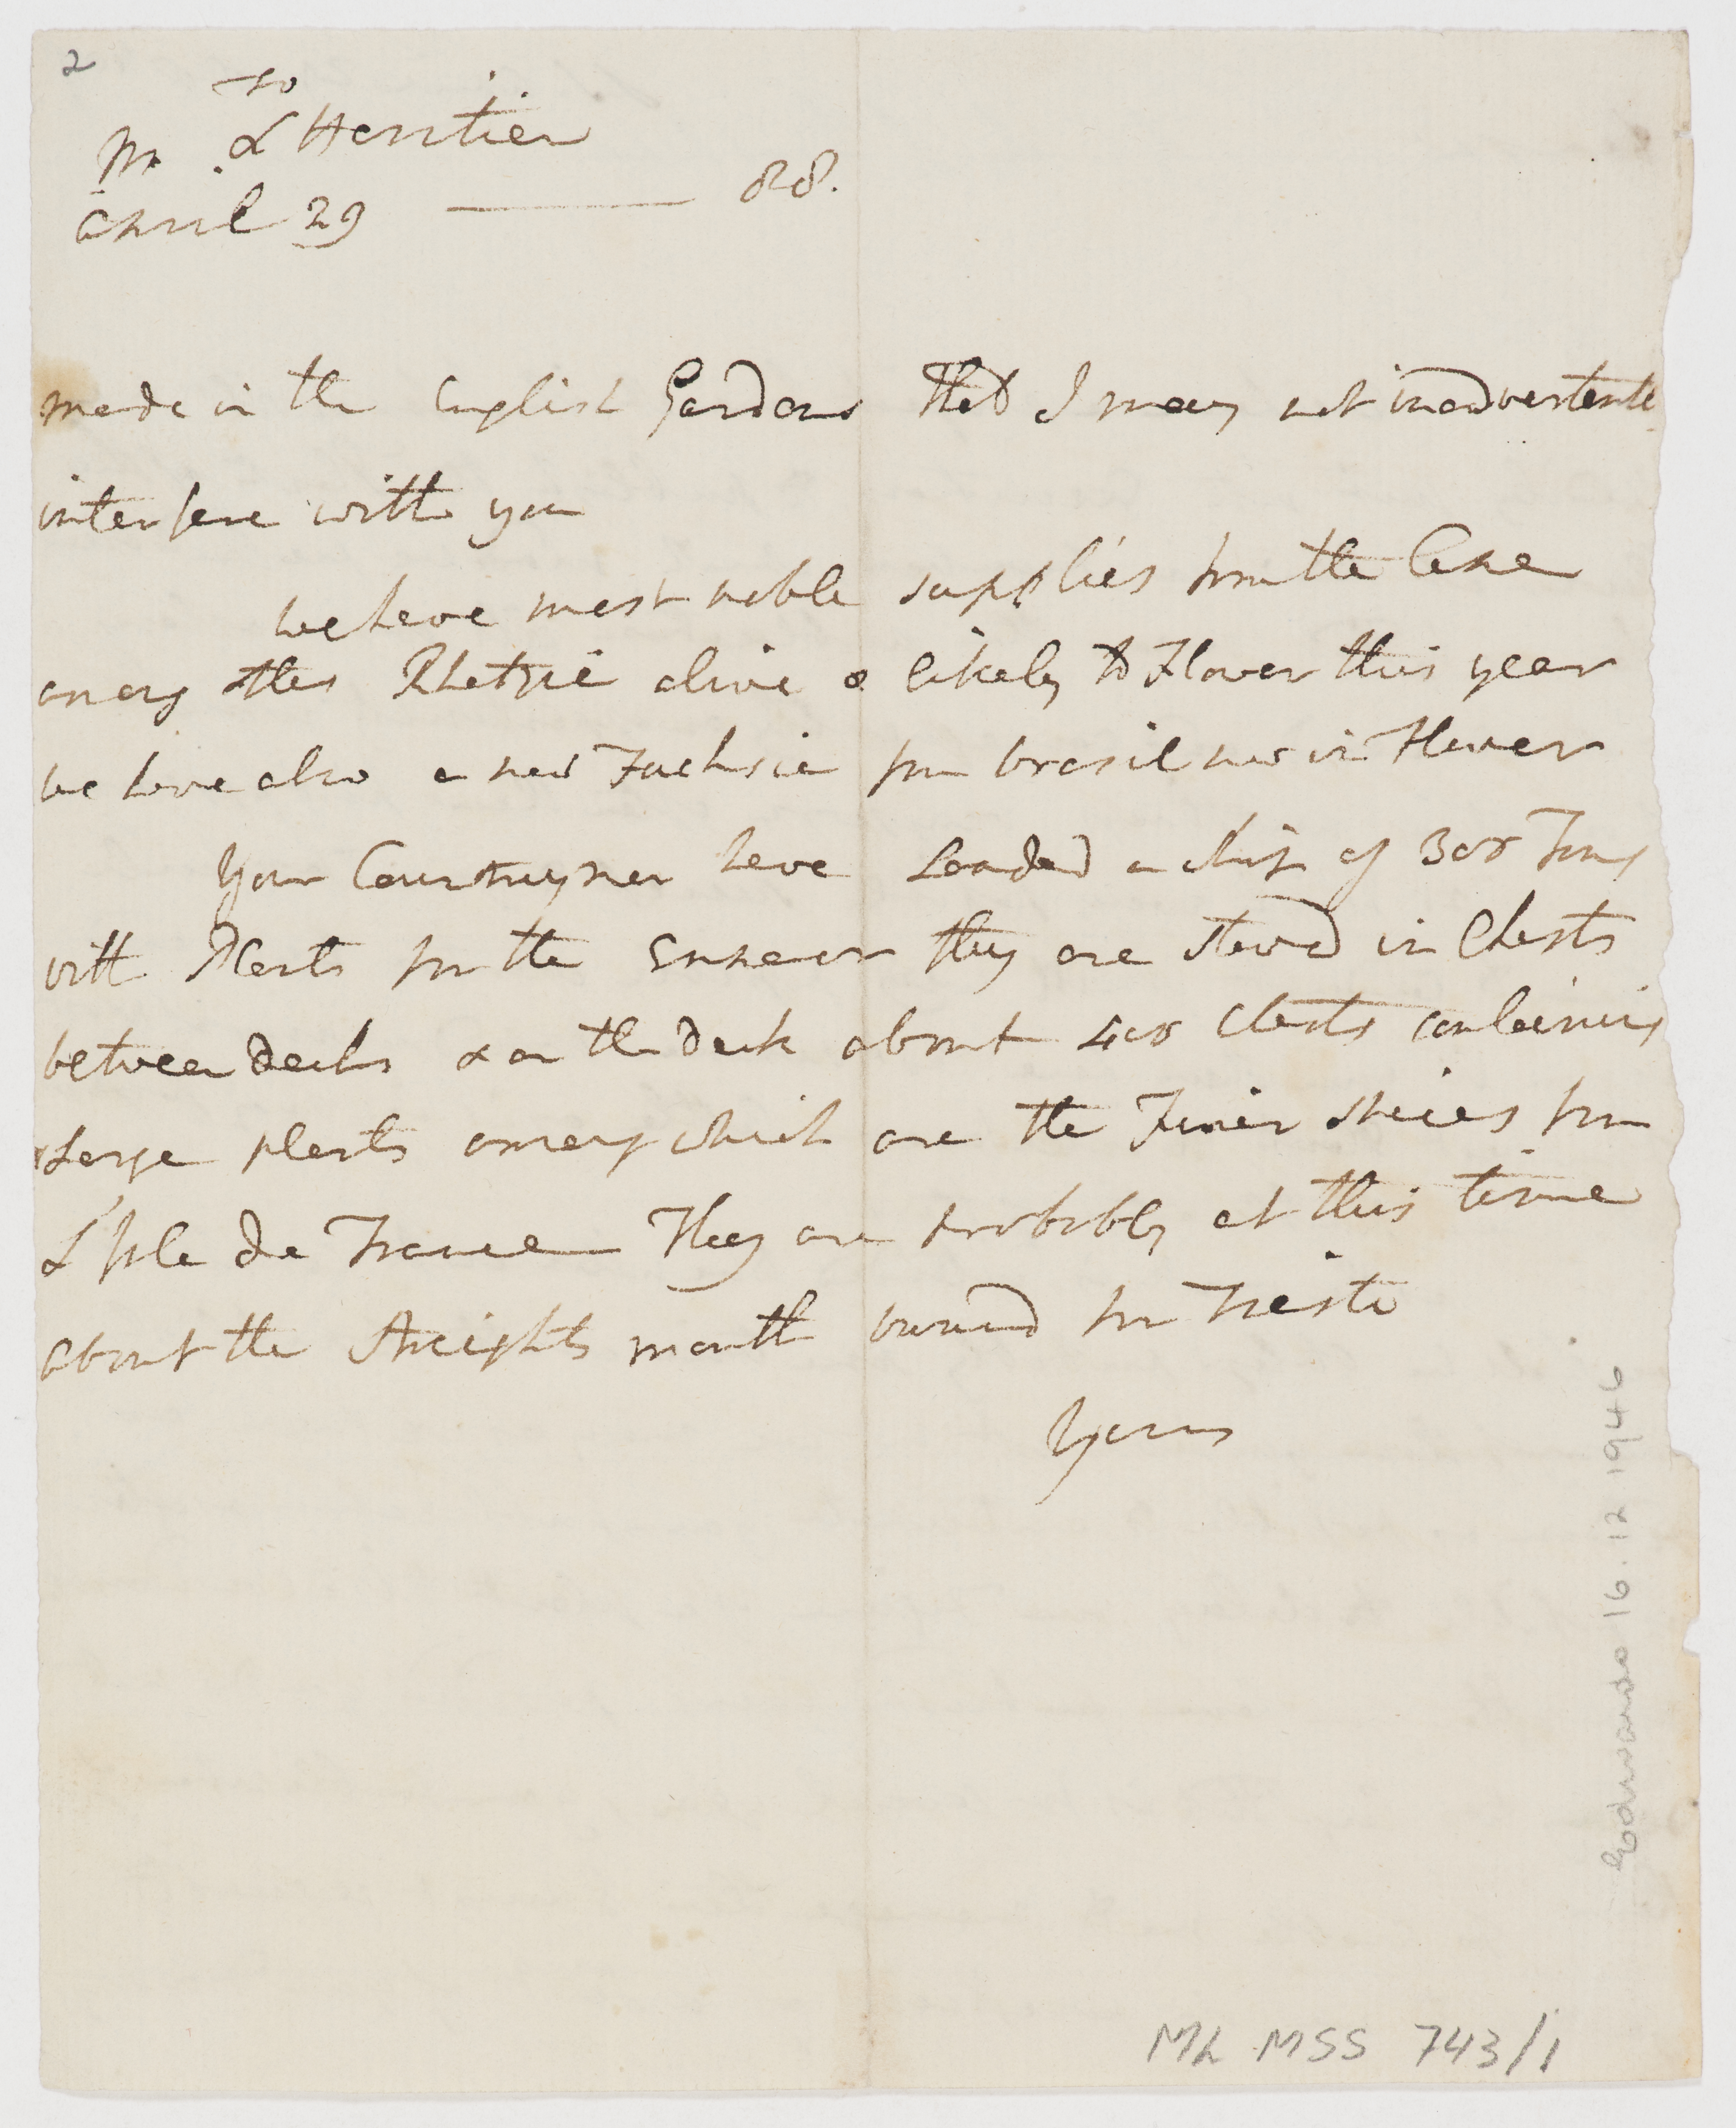 2
To
Mr. L'Heritier
April 29 ——— 88.
made in the English Gardens that I may not inadvertently
interfere with you
we have most noble supplies from the Cape
among them Rhetzie alive & likely to Flower this year
we have also a new Fuchsie from brasil now in Flower
Your Countrymen have Loaded a ship of 300 Tons
with Plants for the Emperor they are stowd in Chests
between decks & on the deck about 400 Chests containing
Large plants among which are the Finer spices from
L'Isle de France They are probably at this time
about the Streights mouth bound for Trieste
Yours
Edwards 16.12.1946
ML MSS 743/1